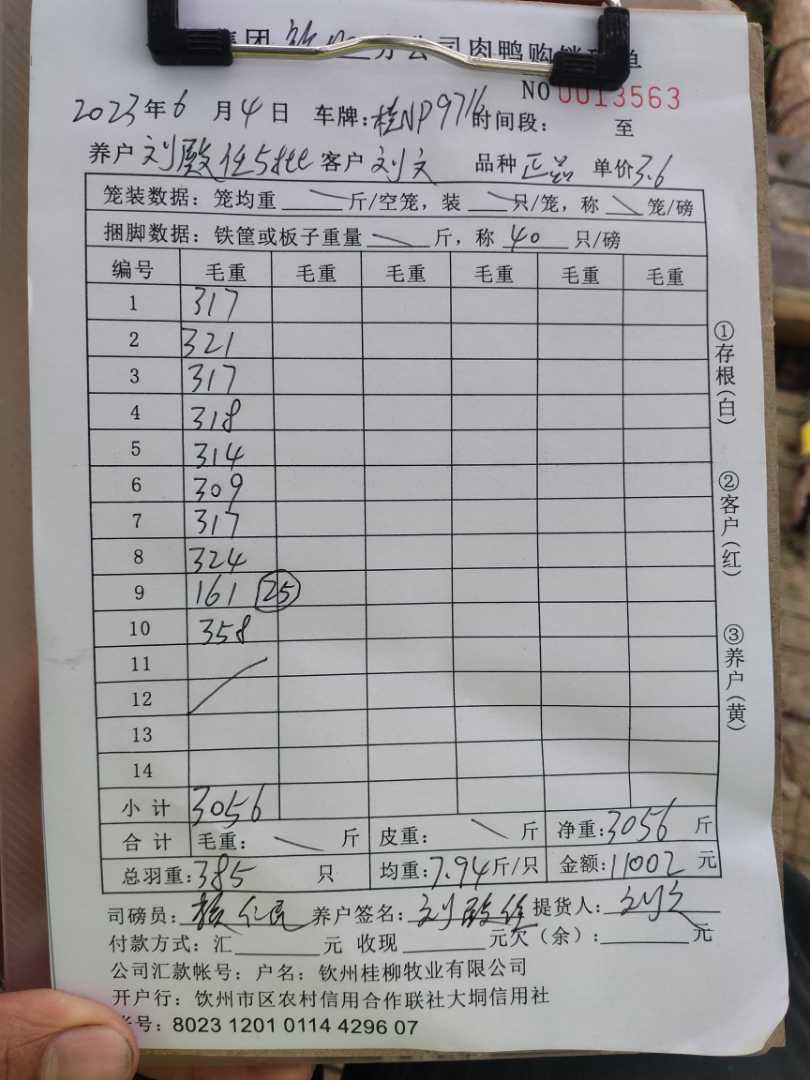 集团 分公司肉鸭购销码单
NO 0013563
2023年6月4日 车牌:桂NP9716 时间段: 至
养户 刘 客户 刘文 品种 正品 单价3.6
笼装数据:笼均重 斤/空笼,装 只/笼,称 笼/磅
捆脚数据:铁筐或板子重量 斤,称 40 只/磅
编号 毛重 毛重 毛重 毛重 毛重 毛重
1 317
2 321
3 317
4 318
5 314
6 309
7 317
8 324
9 161 25
10 358
11
12
13
14
小计 3056
合计 毛重: 斤 皮重: 斤 净重:3056 斤
总羽重:385 只 均重:7.94斤/只 金额:11002 元
①存根(白)
②客户(红)
③养户(黄)
司磅员: 仁民 养户签名: 刘 提货人: 刘文
付款方式:汇 元 收现 元欠(余): 元
公司汇款帐号:户名:钦州桂柳牧业有限公司
开户行:钦州市区农村信用合作联社大垌信用社
号:8023 1201 0114 4296 07